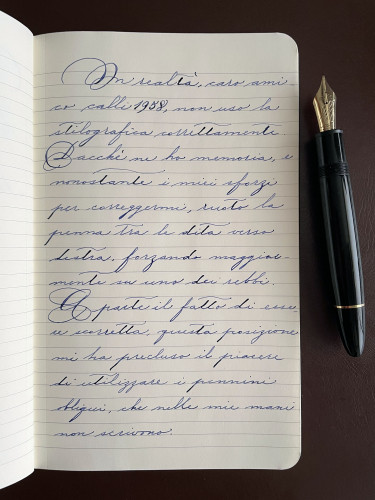 In realtà, caro ami-
co calli 1958, non uso la
stilografica correttamente
Dacché ne ho memoria, e
nonostante i miei sforzi
per correggermi, ruoto la
penna tra le dita verso
destra, forzando maggior-
mente su uno dei rebbi.
A parte il fatto di esse-
re scorretta, questa posizione
mi ha precluso il piacere
di utilizzare i pennini
obliqui, che nelle mie mani
non scrivono.